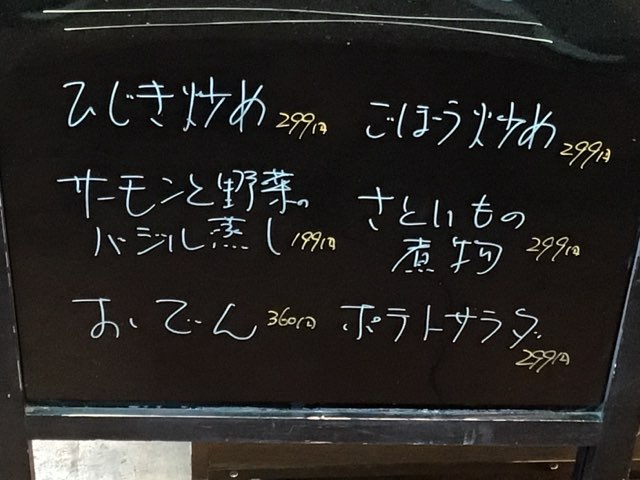 ひじき炒め 299円
ごぼう炒め 299円
サーモンと野菜の
バジル蒸し 199円
さといもの
煮物 299円
おでん 360円
ポテトサラダ
299円